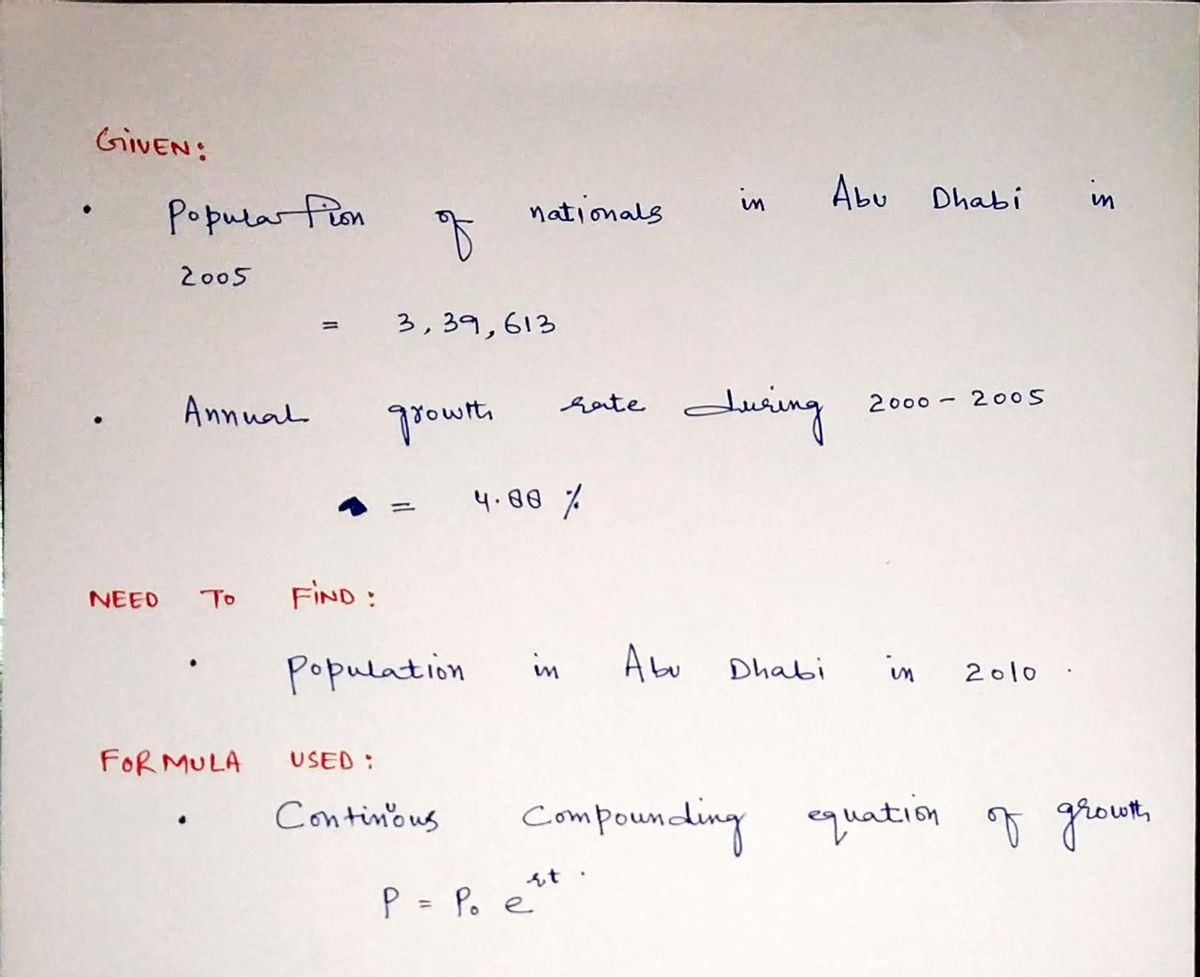 GIVEN:
• Population of nationals in Abu Dhabi in
2005
= 3,39,613
• Annual growth rate during 2000 - 2005
= 4.88 %
NEED TO FIND:
• Population in Abu Dhabi in 2010.
FORMULA USED:
• Continuous Compounding equation of growth
P = P₀ e^rt.